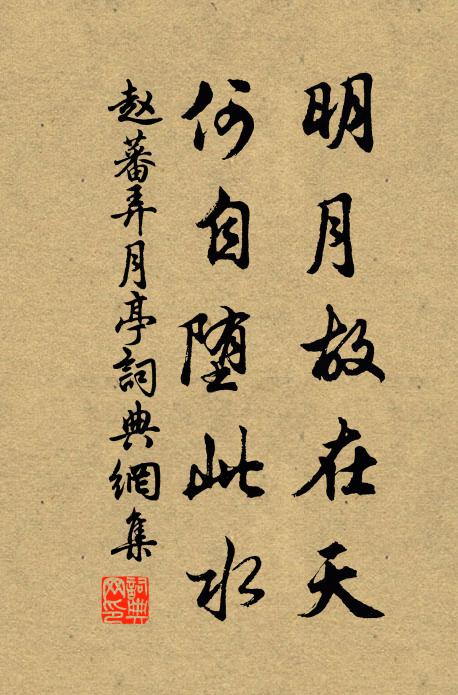 明月故在天
何自堕此水
赵蕃弄月亭詞典網集
詞典网印